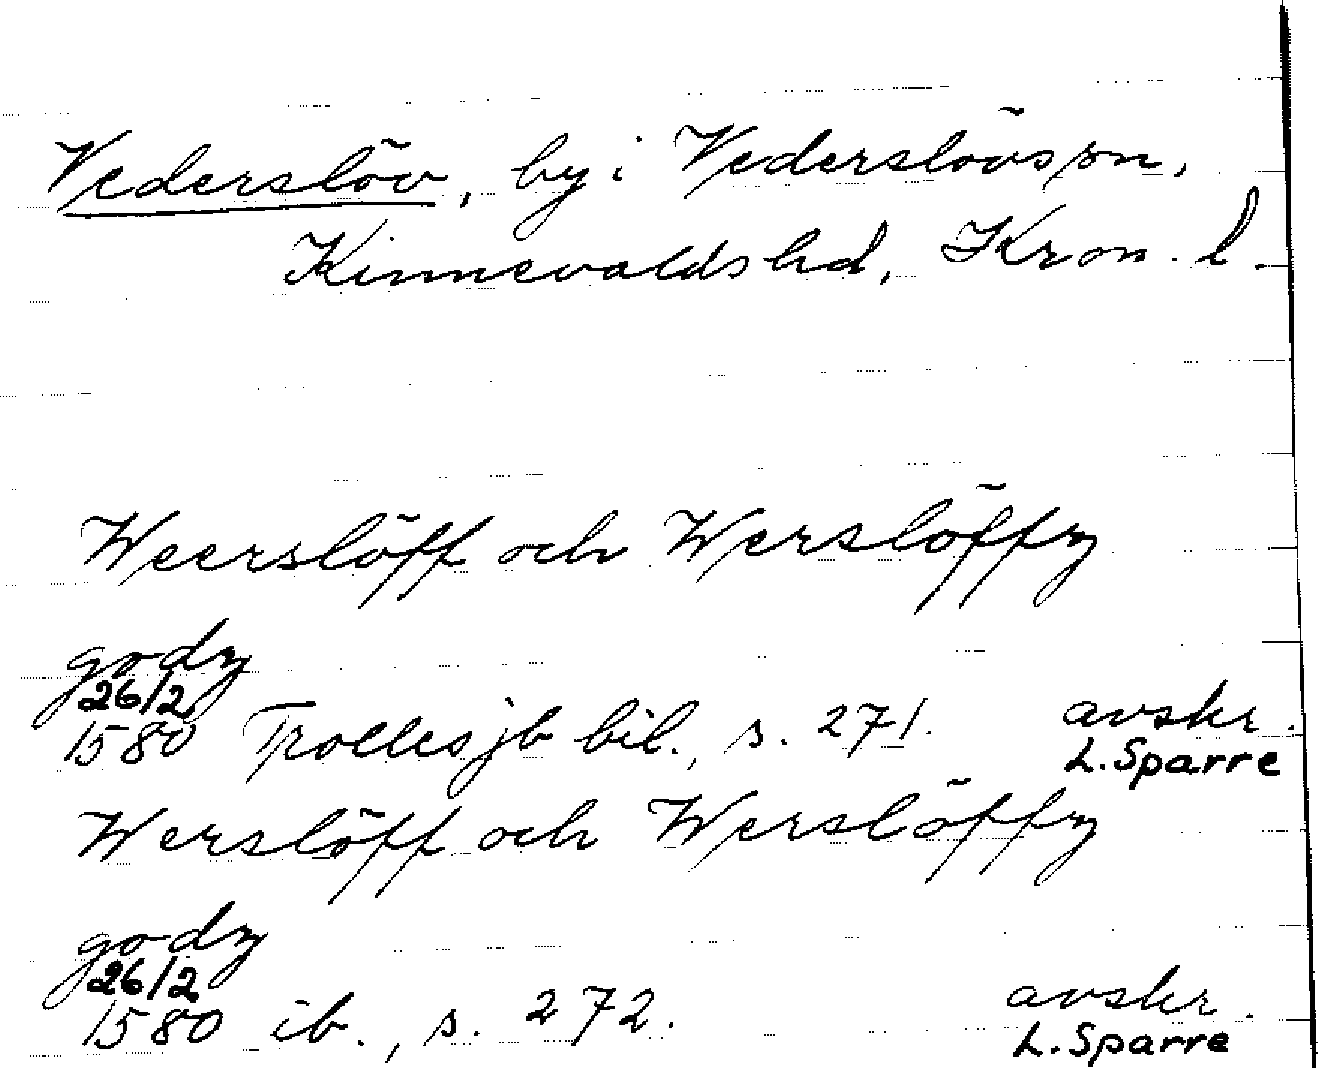 Vederslöv, by i Vederslövs sn,
Kinnevalds hd, Kron. l.
Weerslöff och Werslöffz
godz
26/2
1580 Trolles jb bil., s. 271. avskr.
L. Sparre
Werslöff och Werslöffz
godz
26/2
1580 ib., s. 272. avskr.
L. Sparre